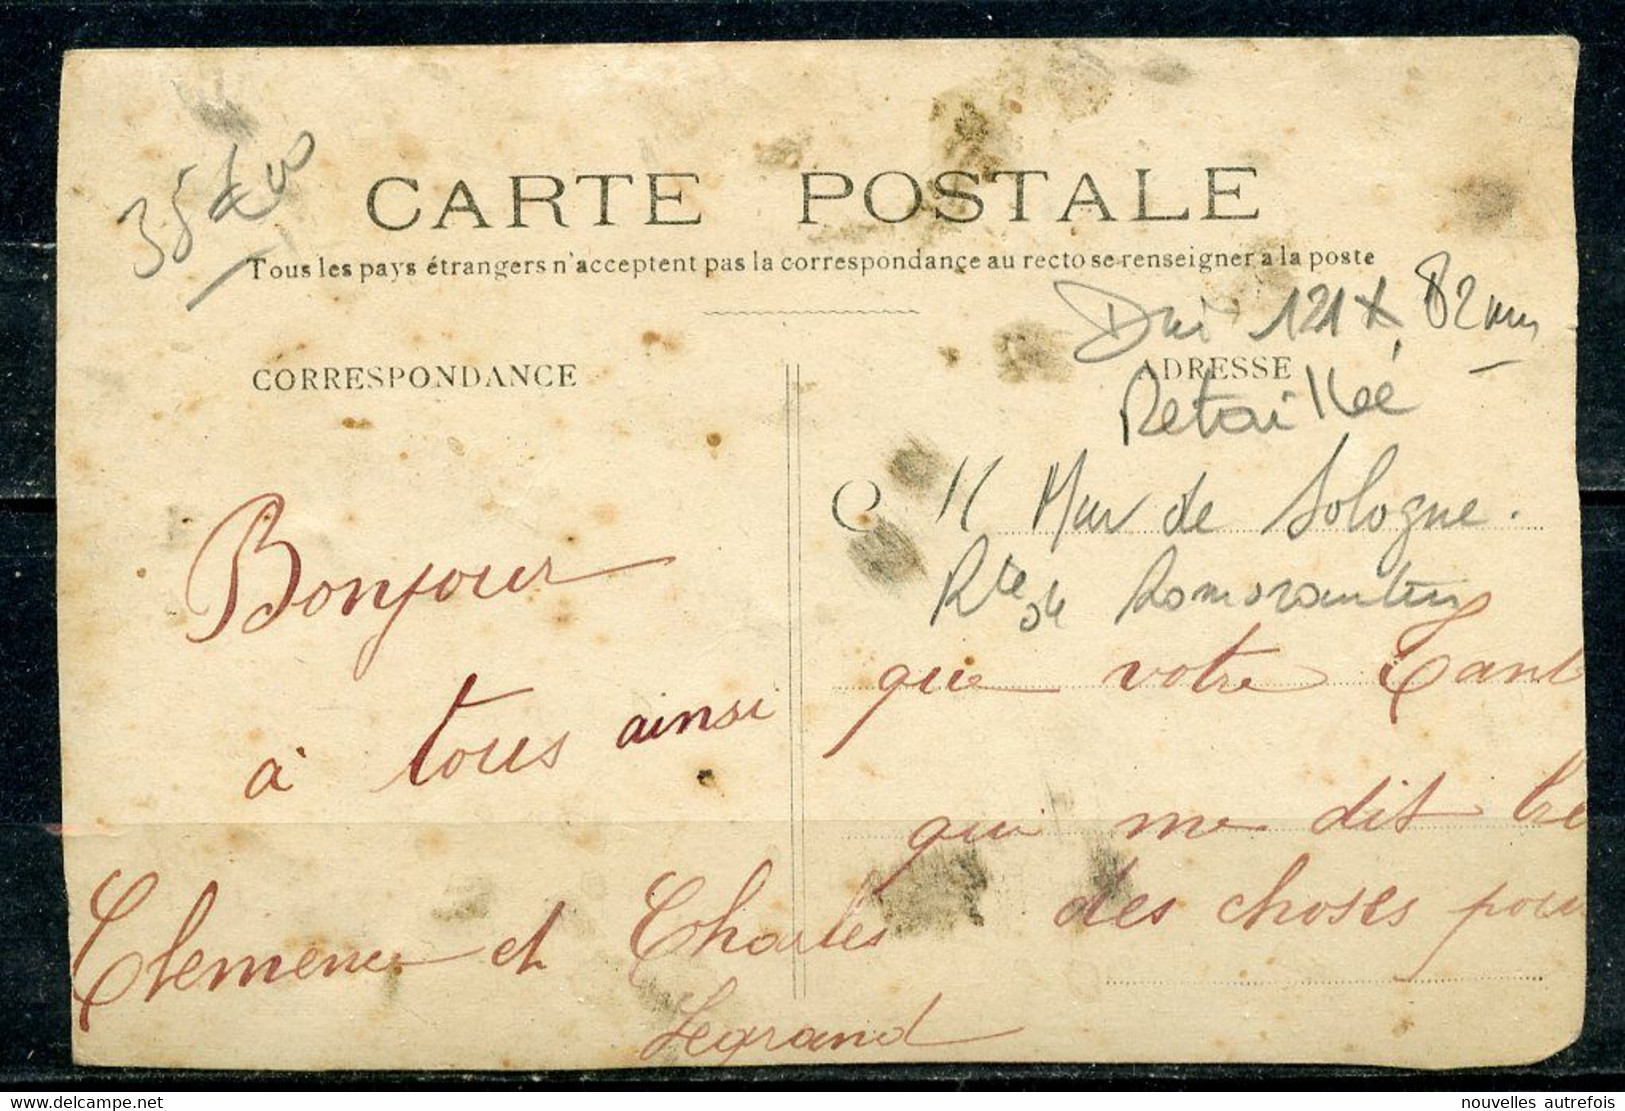 35 Euo
CARTE POSTALE
Tous les pays étrangers n'acceptent pas la correspondance au recto se renseigner a la poste
Dim 121 x 82 mm
CORRESPONDANCE
ADRESSE
Retaillée
Mur de Sologne.
Rte de Romorantin
Bonjour
à tous ainsi
Clemence et Charles
Legrand
que votre Tant
qui me dit tre
des choses pour
www.delcampe.net
nouvelles autrefois